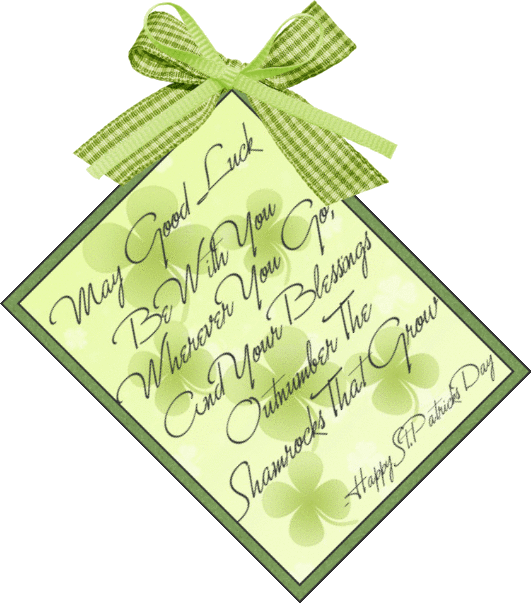 May Good Luck
Be With You
Wherever You Go,
And Your Blessings
Outnumber The
Shamrocks That Grow
-Happy St. Patrick's Day